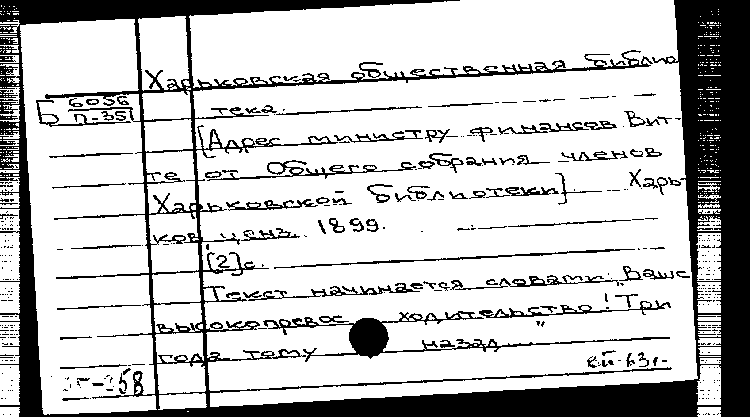 Харьковская общественная библио
Б 6056
П-351
тека.
[Адрес министру финансов Вит-
те от Общего собрания членов
Харьковской библиотеки]. Харь-
ков, ценз. 1899.
[2]с.
Текст начинается словами: „Ваше
высокопревос ходительство! Три
года тому назад..."